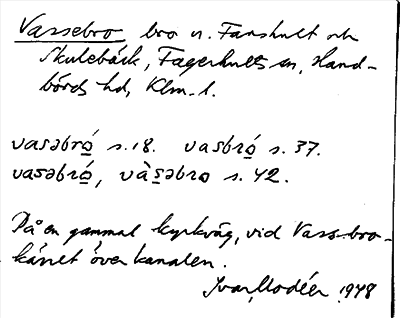 Vassebro bro n. Fanhult och
Skulebäck, Fagerhults sn, Hand-
börds hd, Klm. l.
vasəbró̠ s. 18. vasbró̠ s. 37.
vasəbró̠, vàs̠əbro s. 42.
På en gammal kyrkväg, vid Vassbro-
kärret över kanalen.
Ivar Modéer 1948